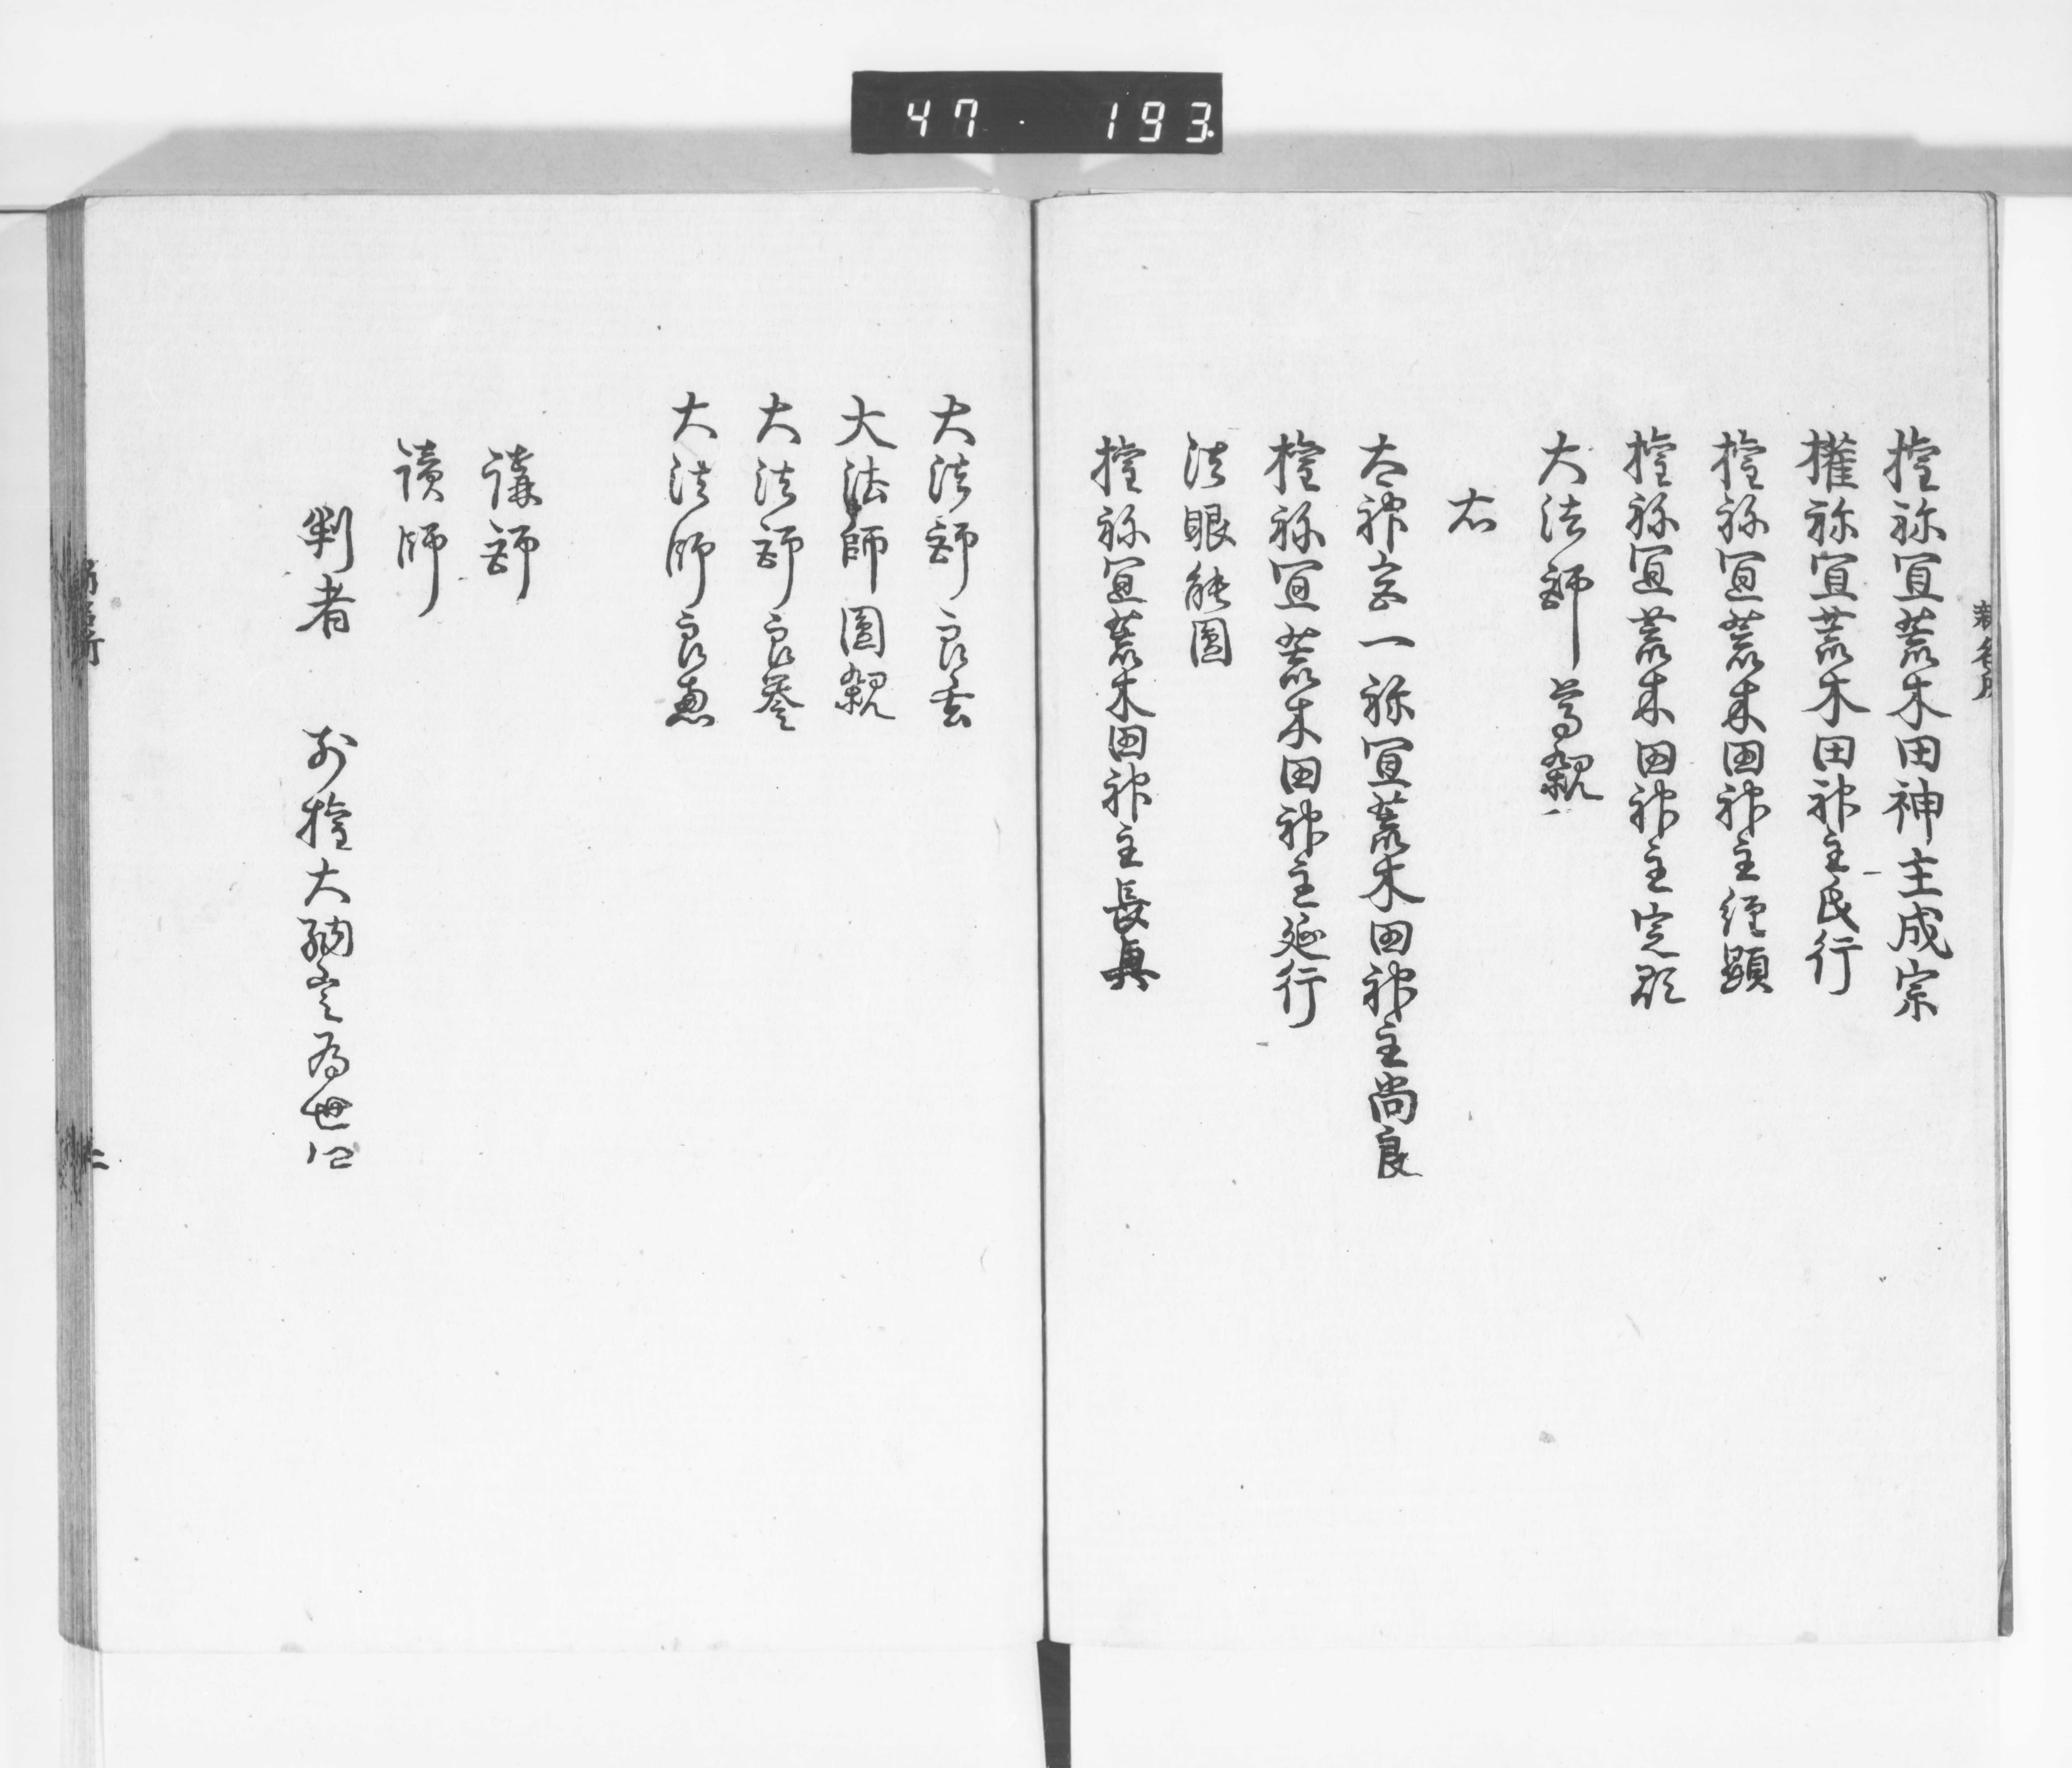 47 193
新名所
權祢宜荒木田神主成宗
權祢宜荒木田神主氏行
權祢宜荒木田神主經顕
權祢宜荒木田神主定
大法師尊親
右
大神宮一祢宜荒木田神主尚良
權祢宜荒木田神主延行
法眼能圓
權祢宜荒木田神主長興
大法師良
大法師圓親
大法師良誉
大法師良恵
講師
讀師
判者 前權大納言為世卿
二